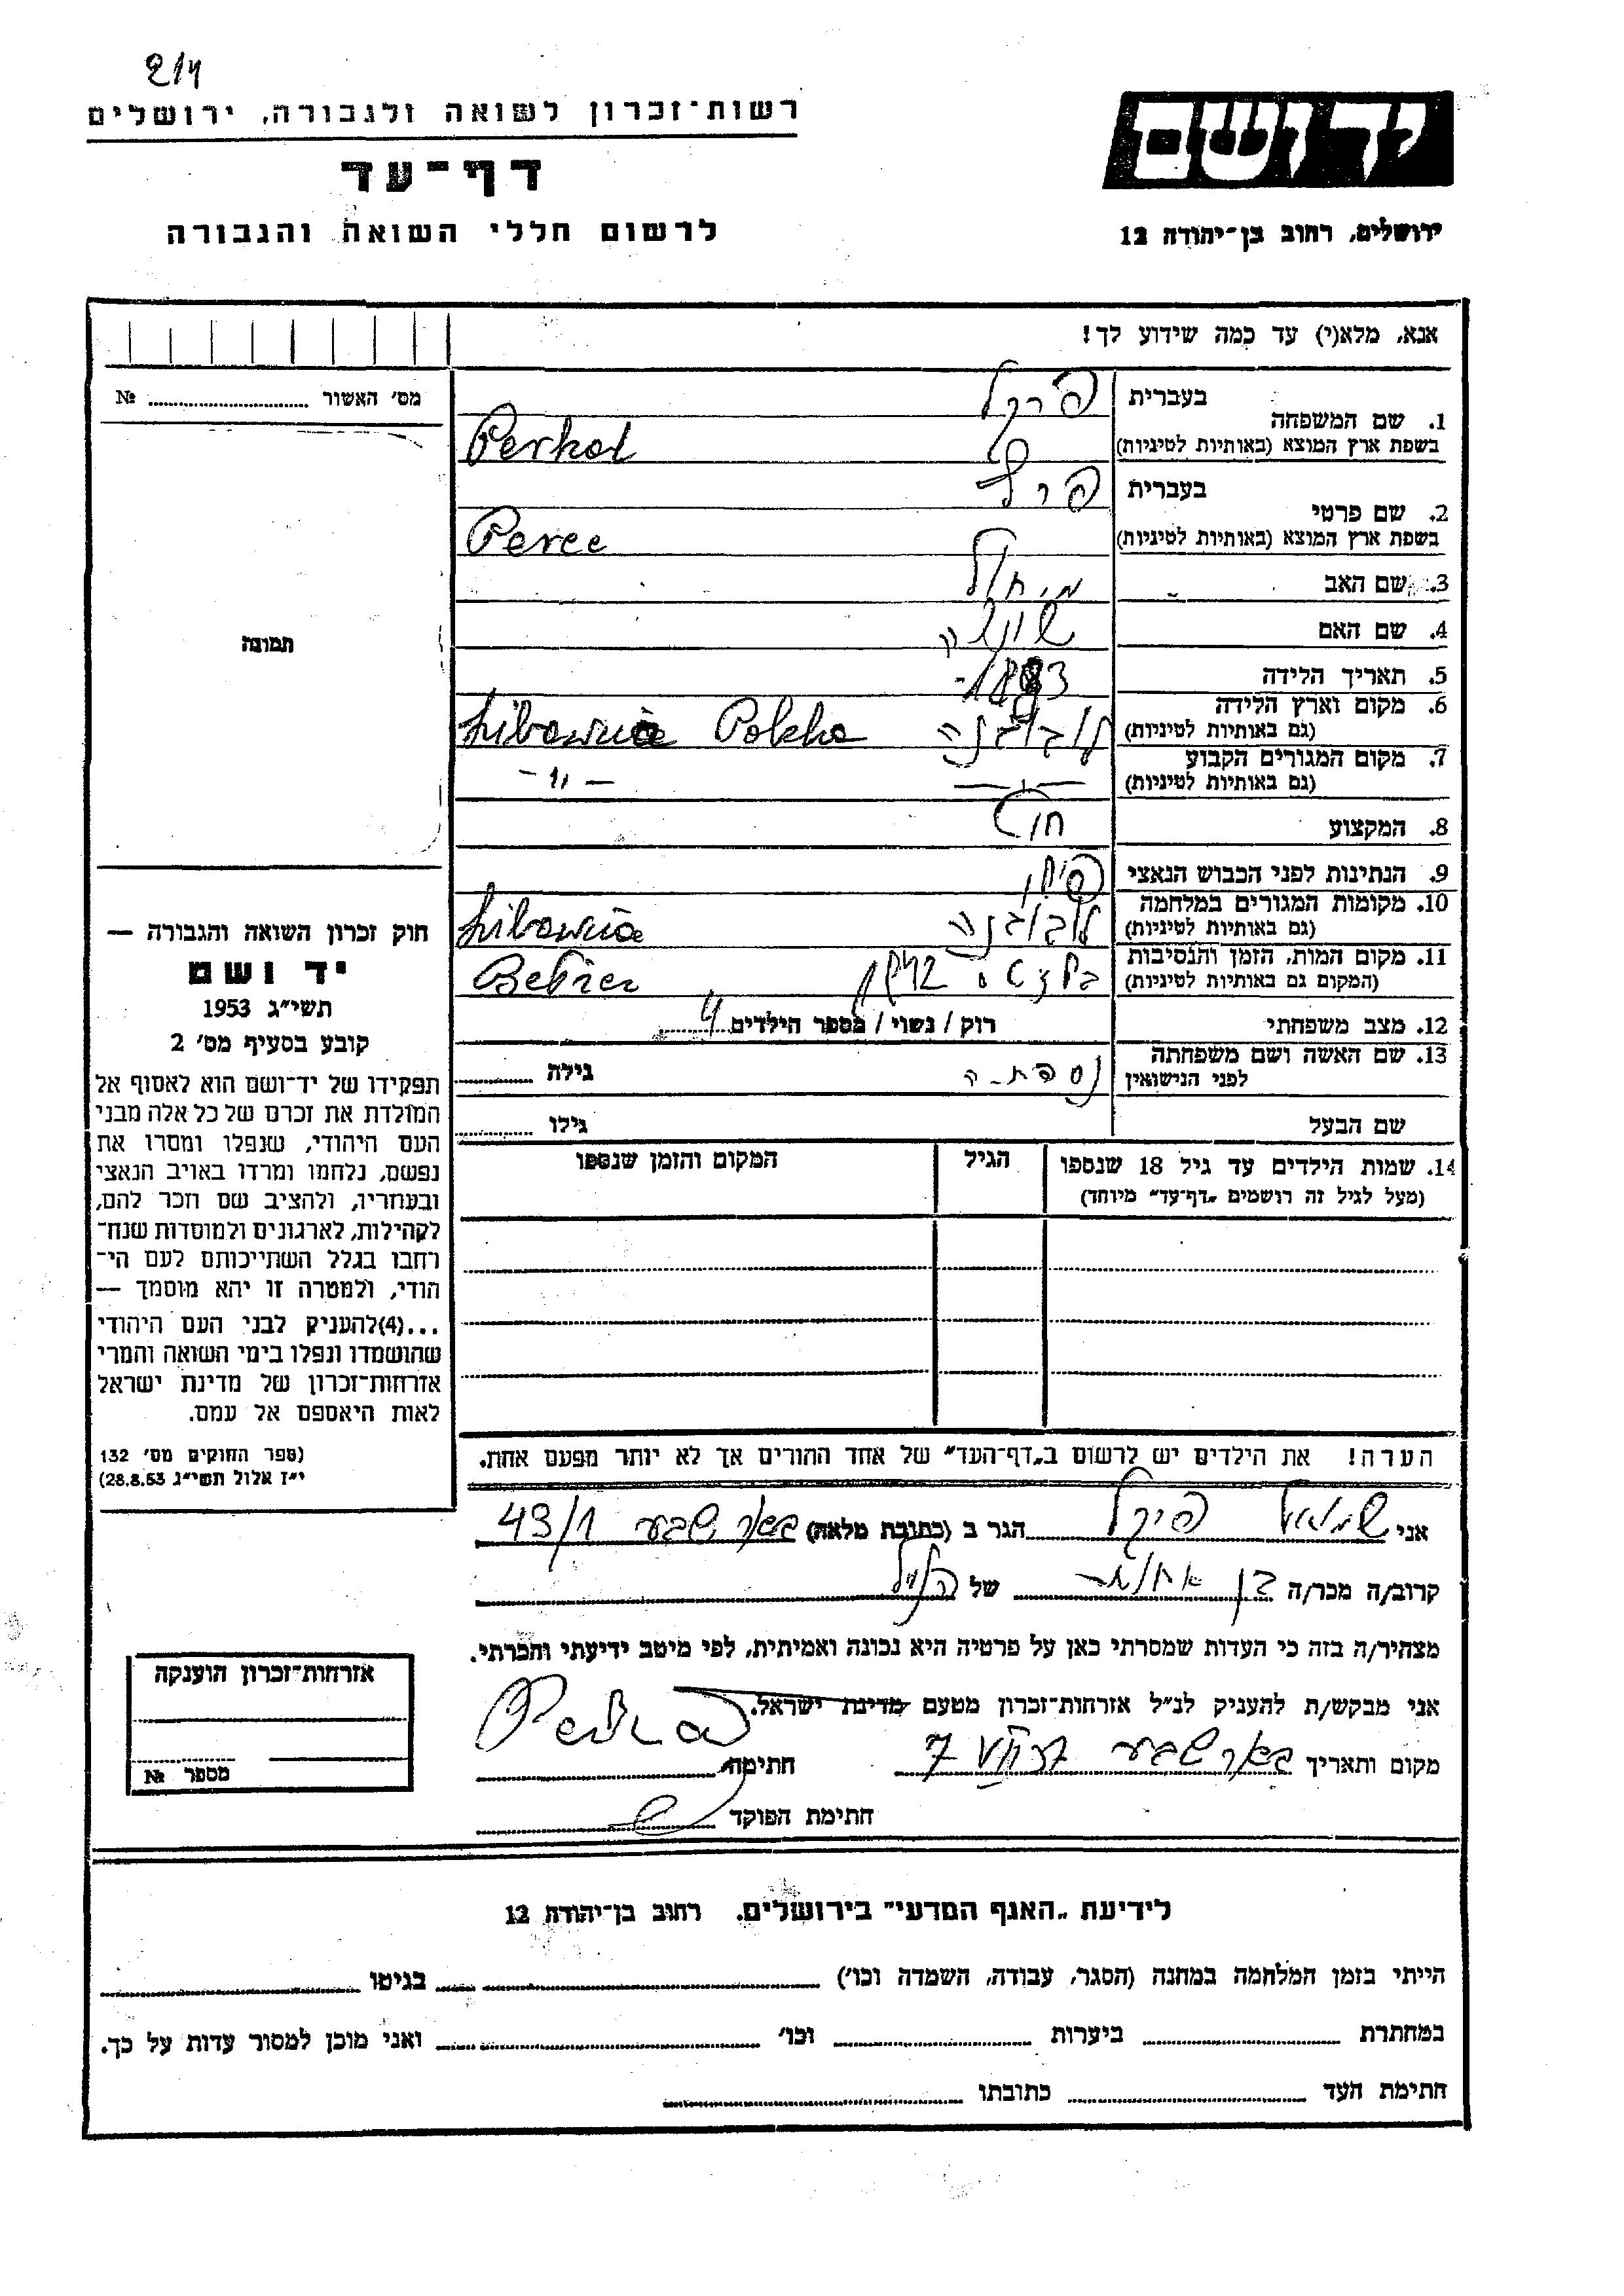 2/4
רשות־זכרון לשואה ולגבורה, ירושלים
יד ושם
דף־עד
לרשום חללי השואה והגבורה
ירושלים, רחוב בן־יהודה 12
אנא, מלא(י) עד כמה שידוע לך!
מס' האשור № 
1. שם המשפחה
בעברית פרקל
בשפת ארץ המוצא (באותיות לטיניות) Perkal
2. שם פרטי
בעברית פרץ
בשפת ארץ המוצא (באותיות לטיניות) Perec
3. שם האב
4. שם האם
5. תאריך הלידה
6. מקום וארץ הלידה
(גם באותיות לטיניות) Polska
7. מקום המגורים הקבוע
(גם באותיות לטיניות) - " -
8. המקצוע
9. הנתינות לפני הכבוש הנאצי
10. מקומות המגורים במלחמה
(גם באותיות לטיניות)
11. מקום המות, הזמן והנסיבות 1942
(המקום גם באותיות לטיניות)
12. מצב משפחתי רוק / נשוי / מספר הילדים 4
13. שם האשה ושם משפחתה
לפני הנישואין
גילה
שם הבעל
גילו
14. שמות הילדים עד גיל 18 שנספו
(מעל לגיל זה רושמים „דף־עד" מיוחד)
הגיל
המקום והזמן שנספו
תמונה
חוק זכרון השואה והגבורה —
יד ושם
תשי"ג 1953
קובע בסעיף מס' 2
תפקידו של יד־ושם הוא לאסוף אל
המולדת את זכרם של כל אלה מבני
העם היהודי, שנפלו ומסרו את
נפשם, נלחמו ומרדו באויב הנאצי
ובעוזריו, ולהציב שם וזכר להם,
לקהילות, לארגונים ולמוסדות שנח־
רבו בגלל השתייכותם לעם הי־
הודי, ולמטרה זו יהא מוסמך —
...(4)להעניק לבני העם היהודי
שהושמדו ונפלו בימי השואה והמרי
אזרחות־זכרון של מדינת ישראל
לאות היאספם אל עמם.
(ספר החוקים מס' 132
י"ז אלול תשי"ג 28.8.53)
הערה! את הילדים יש לרשום ב„דף־העד" של אחד ההורים אך לא יותר מפעם אחת.
אני שמואל פרקל הגר ב (כתובת מלאה) באר שבע 43/1
קרוב/ה מכר/ה בן של הנ"ל
מצהיר/ה בזה כי העדות שמסרתי כאן על פרטיה היא נכונה ואמיתית, לפי מיטב ידיעתי והכרתי.
אני מבקש/ת להעניק לנ"ל אזרחות־זכרון מטעם מדינת ישראל.
מקום ותאריך באר שבע
חתימה
חתימת הפוקד
אזרחות־זכרון הוענקה
מספר №
לידיעת „האגף המדעי" בירושלים, רחוב בן־יהודה 12
הייתי בזמן המלחמה במחנה (הסגר, עבודה, השמדה וכו') בגיטו
במחתרת ביערות וכו' ואני מוכן למסור עדות על כך.
חתימת העד כתובתו